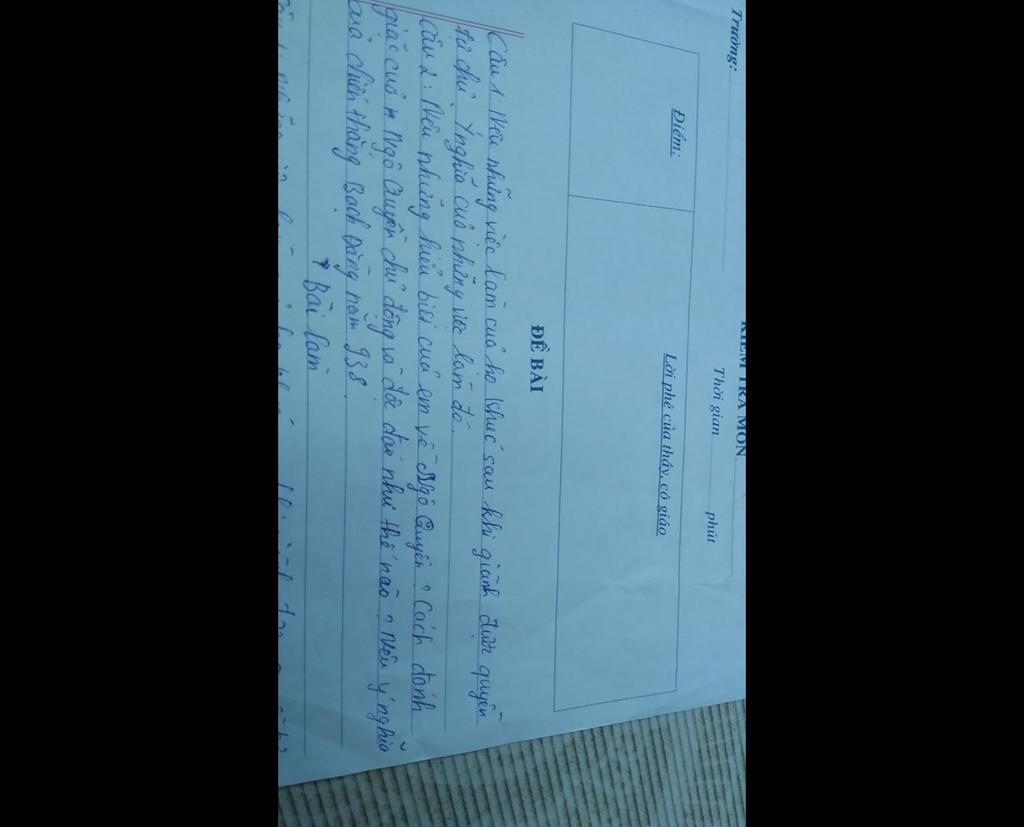 Trường:
KIỂM TRA MÔN
Thời gian phút
Điểm:
Lời phê của thầy, cô giáo
ĐỀ BÀI
Câu 1: Nêu những việc làm của họ Khúc sau khi giành được quyền
tự chủ. Ý nghĩa của những việc làm đó.
Câu 2: Nêu những hiểu biết của em về Ngô Quyền? Cách đánh
giặc của Ngô Quyền chủ động và độc đáo như thế nào? Nêu ý nghĩa
của chiến thắng Bạch Đằng năm 938.
* Bài làm